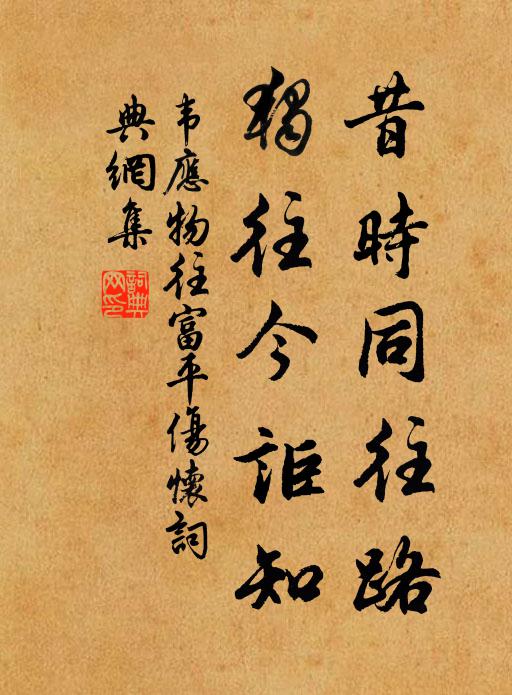 昔時同往路
獨往今詎知
韦應物往富平傷懷詞
典網集
詞典
网印